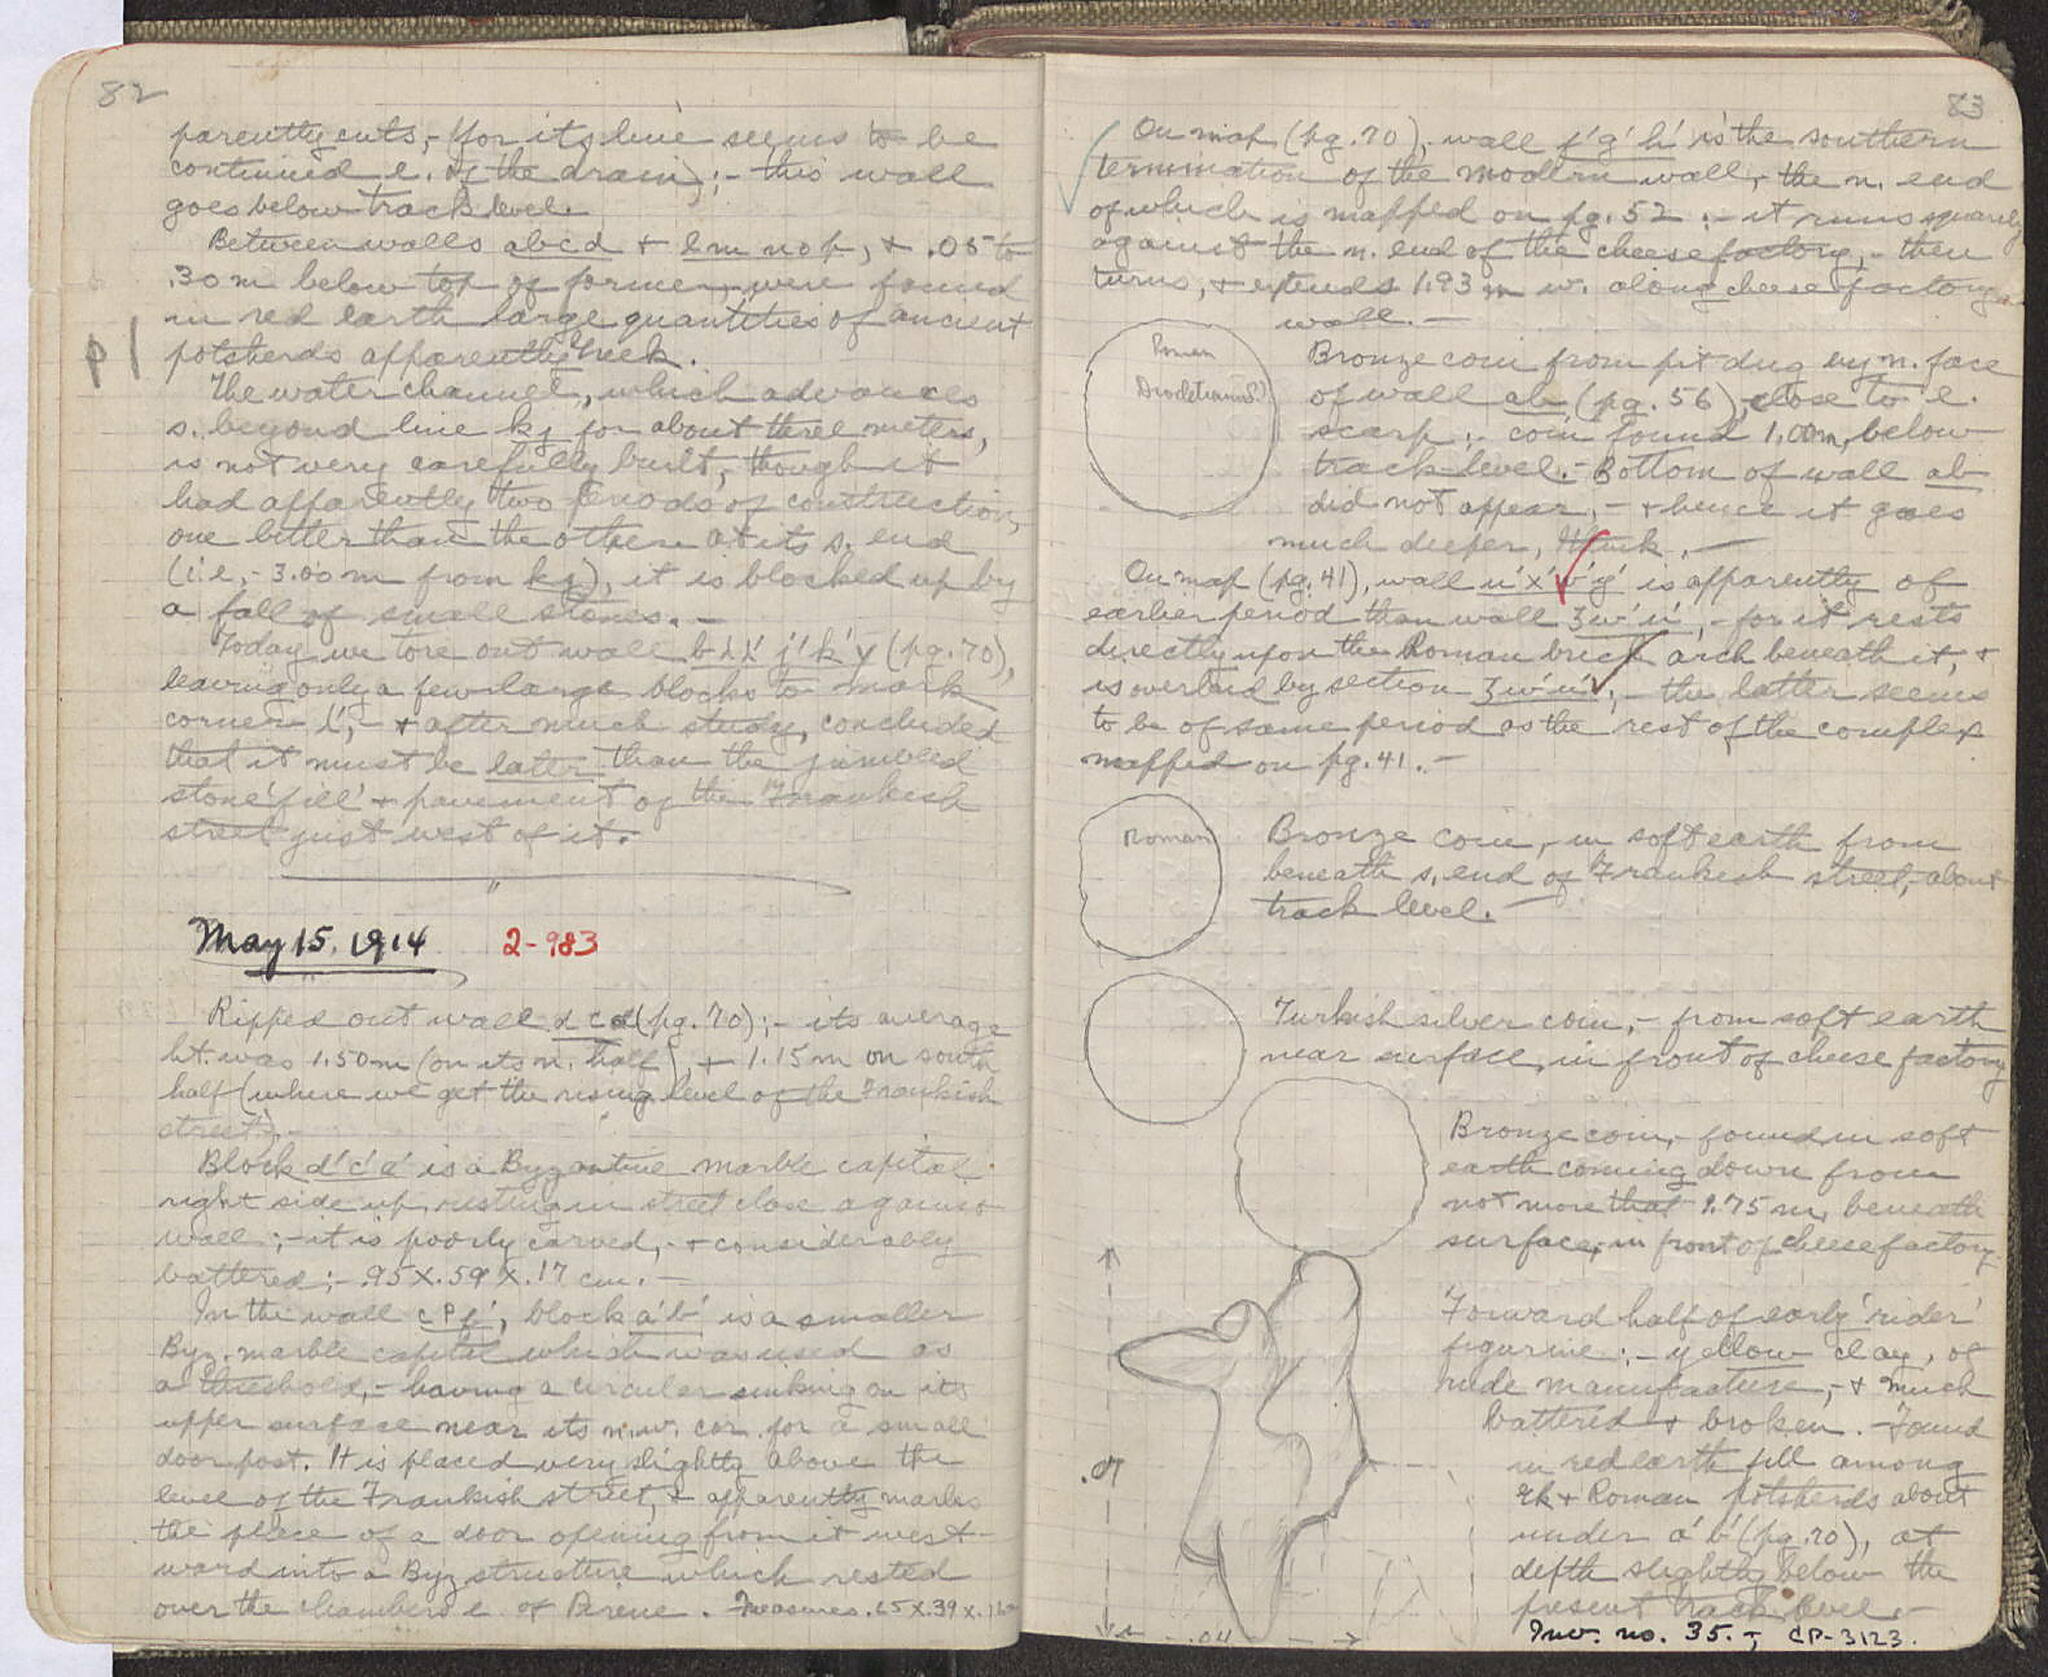 82
parently ents, - for its line seems to be
continued e. of the drain); - this wall
goes below track level.
Between walls abcd + lm nop, + .05 to
.30 m below top of former, were found
in red earth large quantities of ancient
potsherds apparently Greek.
P
The water channel, which advances
s. beyond line kj for about three meters,
is not very carefully built, though it
had apparently two periods of construction,
one better than the other. At its s. end
(i.e, - 3.00 m from kj), it is blocked up by
a fall of small stones. -
Today we tore out wall j'k'y (pg. 70),
leaving only a few large blocks to mark
corner - + after much study, concluded
that it must be later than the jumbled
stone 'fill' + pavement of the "Frankish
street just west of it.
"
May 15. 1914 2-983
Ripped out wall (pg. 70); - its average
ht. was 1.50 m (on its n. half), + 1.15 m on south
half (where we get the rising level of the Frankish
street). -
Block d'c'e' is a Byzantine marble capital
right side up, resting in street close against
wall; - it is poorly carved, - + considerably
battered; - .95 X .59 X .17 cm. -
In the wall block a'b' is a smaller
Byz. marble capital which was used as
a threshold, - having a circular sinking on its
upper surface near its n.w. cor. for a small
door post. It is placed very slightly above the
level of the Frankish street, + apparently marks
the place of a door opening from it west-
ward into a Byz structure which rested
over the chambers e. of Pirene. Measures .65 X .39 X
83
On map (pg. 70), wall f'g'h' is the southern
termination of the modern wall, - the n. end
of which is mapped on pg. 52 : - it runs squarely
against the n. end of the cheese factory, - then
turns, + extends 1.93 m w. along cheese factory
wall. -
Roman
Bronze coin from pit dug by n. face
of wall ab (pg. 56), close to e.
scarp; - coin found 1.00 m, below
track level. - Bottom of wall ab
did not appear, - + hence it goes
much deeper, -
On map (pg. 41), wall u'x'v'y' is apparently of
earlier period than wall 3w'u', - for it rests
directly upon the Roman brick arch beneath it, +
is overlaid by section 3w'u', - the latter seems
to be of same period as the rest of the complex
mapped on pg. 41. -
Roman
Bronze coin, - in soft earth from
beneath s. end of Frankish street, - about
track level. -
Turkish silver coin, - from soft earth
near surface, in front of cheese factory
Bronze coin, - found in soft
earth coming down from
not more that 1.75 m, beneath
surface, in front of cheese factory.
Forward half of early 'rider'
figurine; - yellow clay, of
rude manufacture, - + much
battered + broken. - Found
in red earth fill among
Gk + Roman potsherds about
under a'b' (pg. 70), at
depth slightly below the
present track level -
Inv. no. 35. -, CP-3123.
.07
.04